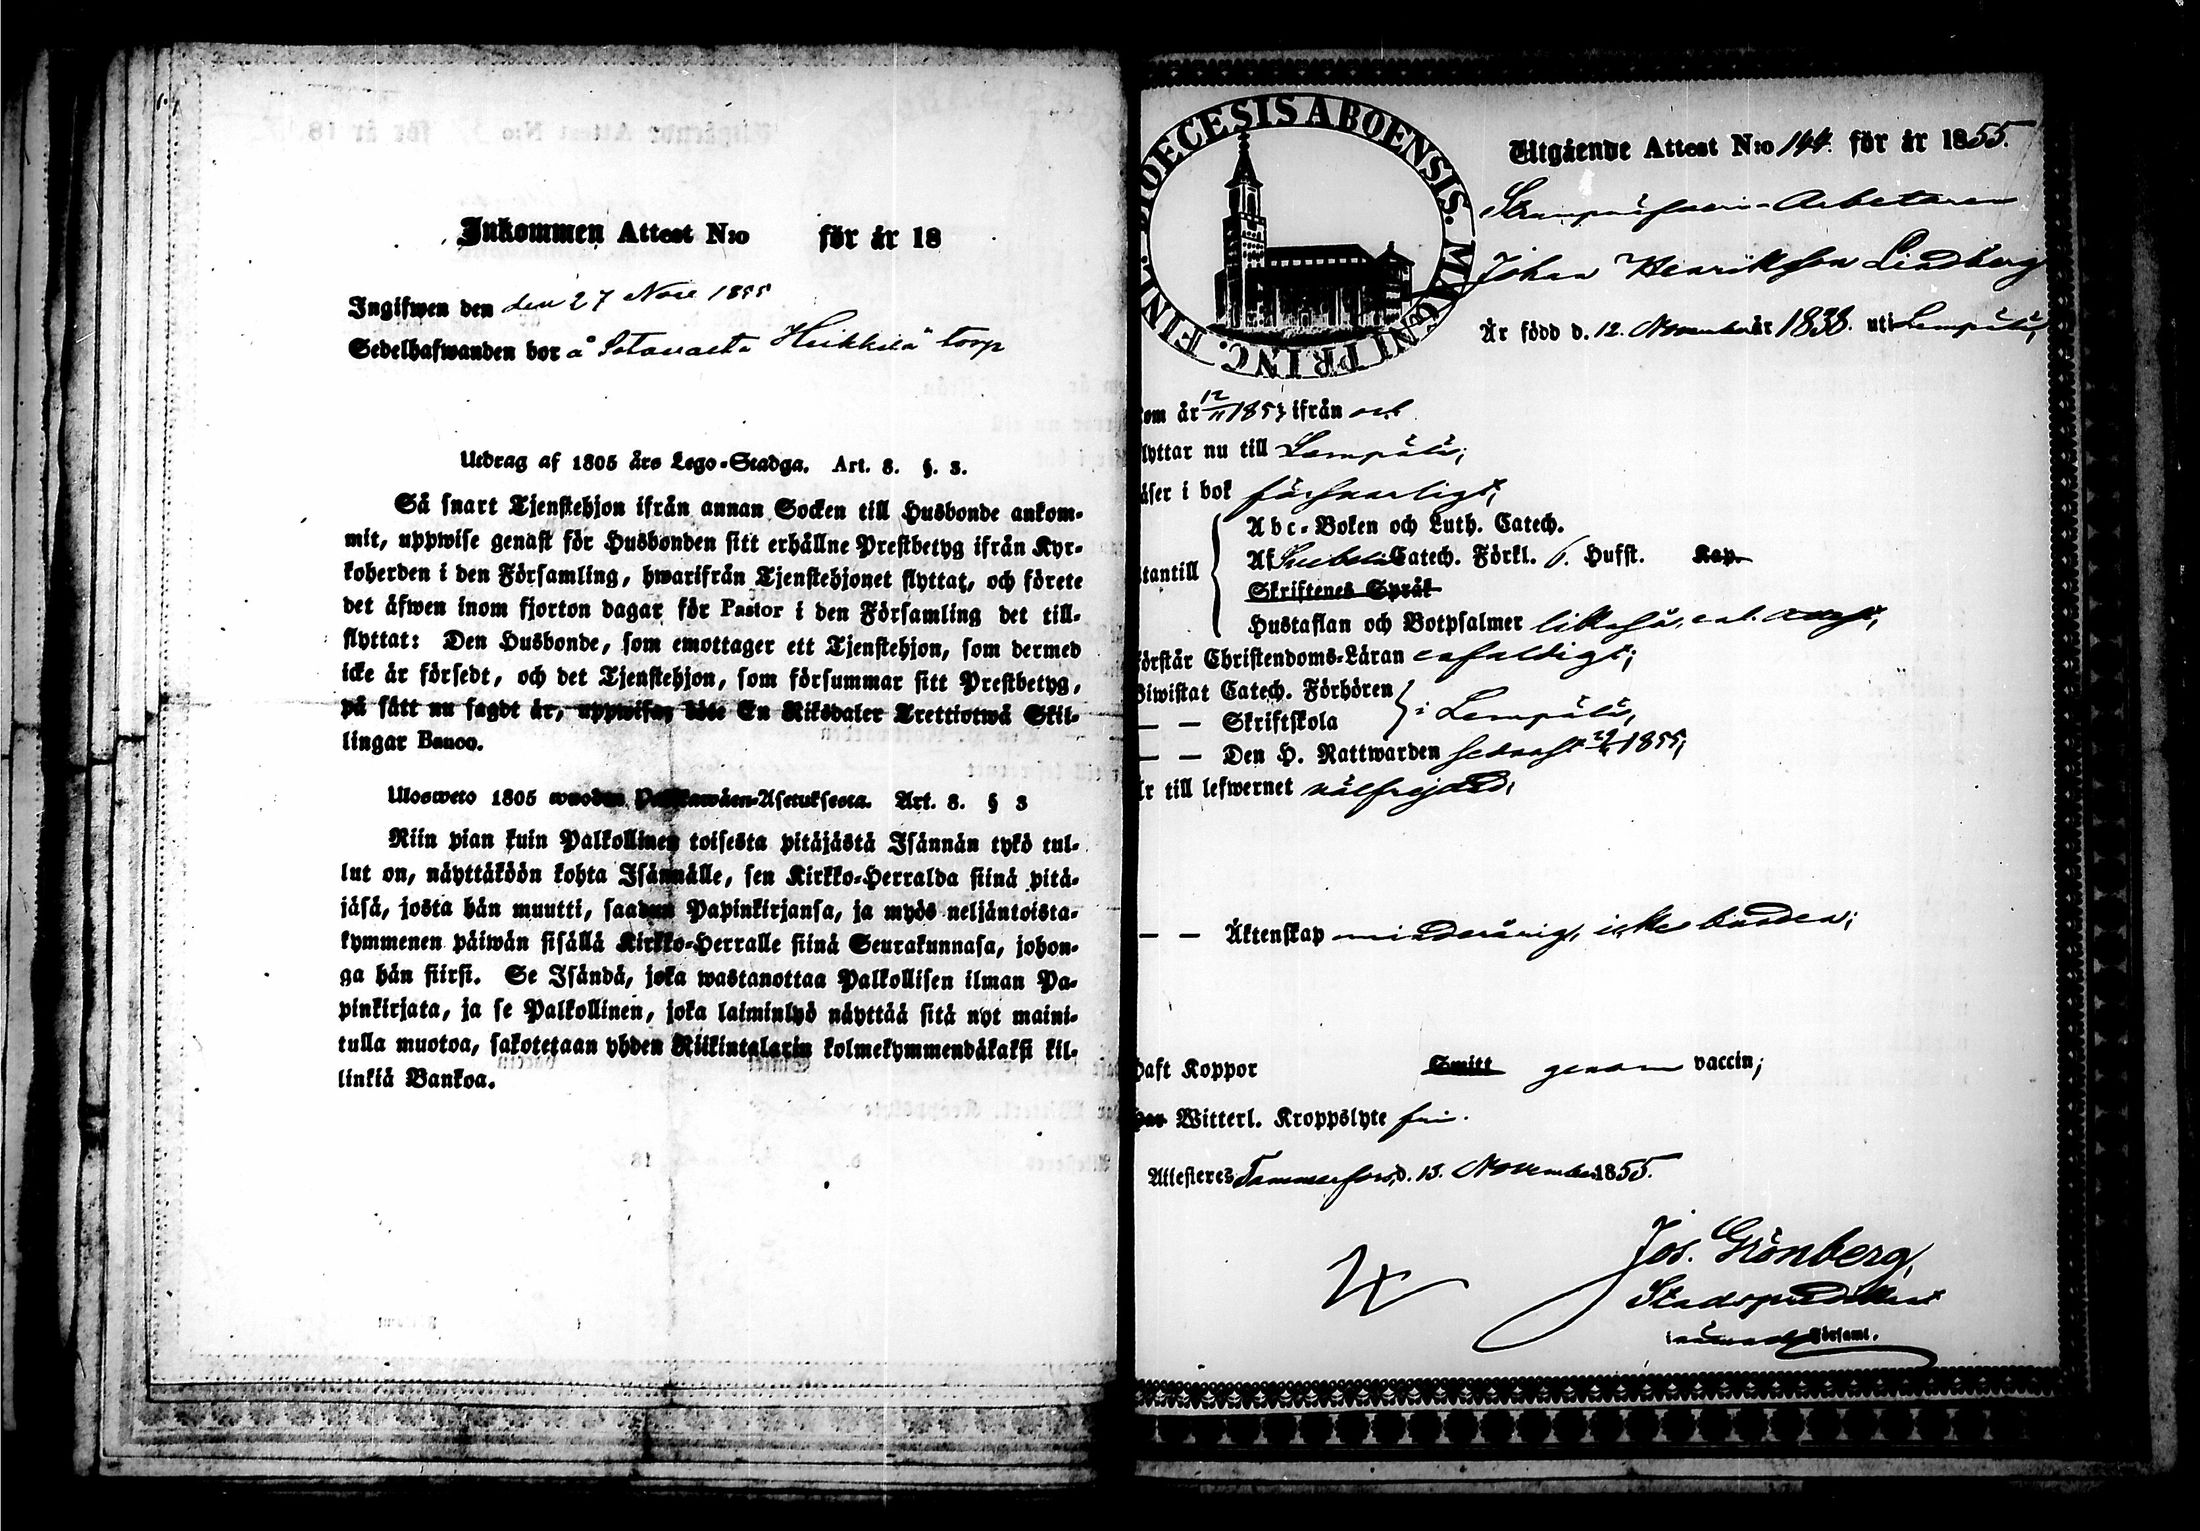 Inkommen Attest N:o för år 18
Ingifwen den den 27 Nove 1855
Sedelhafwanden bor å Sotavalta Heikkilä torp
Utdrag af 1805 års Lego-Stadga. Art. 8. §. 3.
Så snart Tjenstehjon ifrån annan Socken till Husbonde ankom-
mit, uppwise genast för Husbonden sitt erhållne Prestbetyg ifrån Kyr-
koherden i den Församling, hwarifrån Tjenstehjonet flyttat, och förete
det äfwen inom fjorton dagar för Pastor i den Församling det till-
flyttat: Den Husbonde, som emottager ett Tjenstehjon, som dermed
icke är försedt, och det Tjenstehjon, som försummar sitt Prestbetyg,
på sätt nu sagdt är, uppwisa, böte En Riksdaler Trettiotwå Skil-
lingar Banco.
Ulosweto 1805 wuoden Palkkawäen-Asetuksesta. Art. 8. § 3
Niin pian kuin Palkollinen toisesta pitäjästä Isännän tykö tul-
lut on, näyttäköön kohta Isännälle, sen Kirkko-Herralda siinä pitä-
jäsä, josta hän muutti, saadun Papinkirjansa, ja myös neljäntoista-
kymmenen päiwän sisällä Kirkko-Herralle siinä Seurakunnasa, johon-
ga hän siirsi. Se Isändä, joka wastanottaa Palkollisen ilman Pa-
pinkirjata, ja se Palkollinen, joka laiminlyö näyttää sitä nyt maini-
tulla muotoa, sakotetaan yhden Riikintalarin kolmekymmendäkaksi kil-
linkiä Bankoa.
DIOECESIS ABOENSIS. MAGNI PRINC. FINL.
Utgående Attest N:o 144. för år 1855.
Arbetaren
Johan Henriksson Lindberg
Är född d. 12. November år 1838. uti Lempälä;
om år 12/11 1853 ifrån
lyttar nu till Lempälä;
äser i bok försvarligt;
tantill
Abc-Boken och Luth. Catech.
Af Catech. Förkl. 6. Hufst. Kap
Skriftenes Språk
Hustaflan och Botpsalmer likaså,
örstår Christendoms-Läran enfaldigt;
Biwistat Catech. Förhören
— — Skriftskola } i Lempälä,
— — Den H. Nattwarden sednast 1855;
r till lefwernet välfrejdad;
— — Äktenskap minderårig, icke bunden;
haft Koppor Smitt genom vaccin;
har Witterl. Kroppslyte fri.
Attesteres Tammerfors, d. 15. November 1855.
Jos. Grönberg,
Stadspredikant
i Församl.